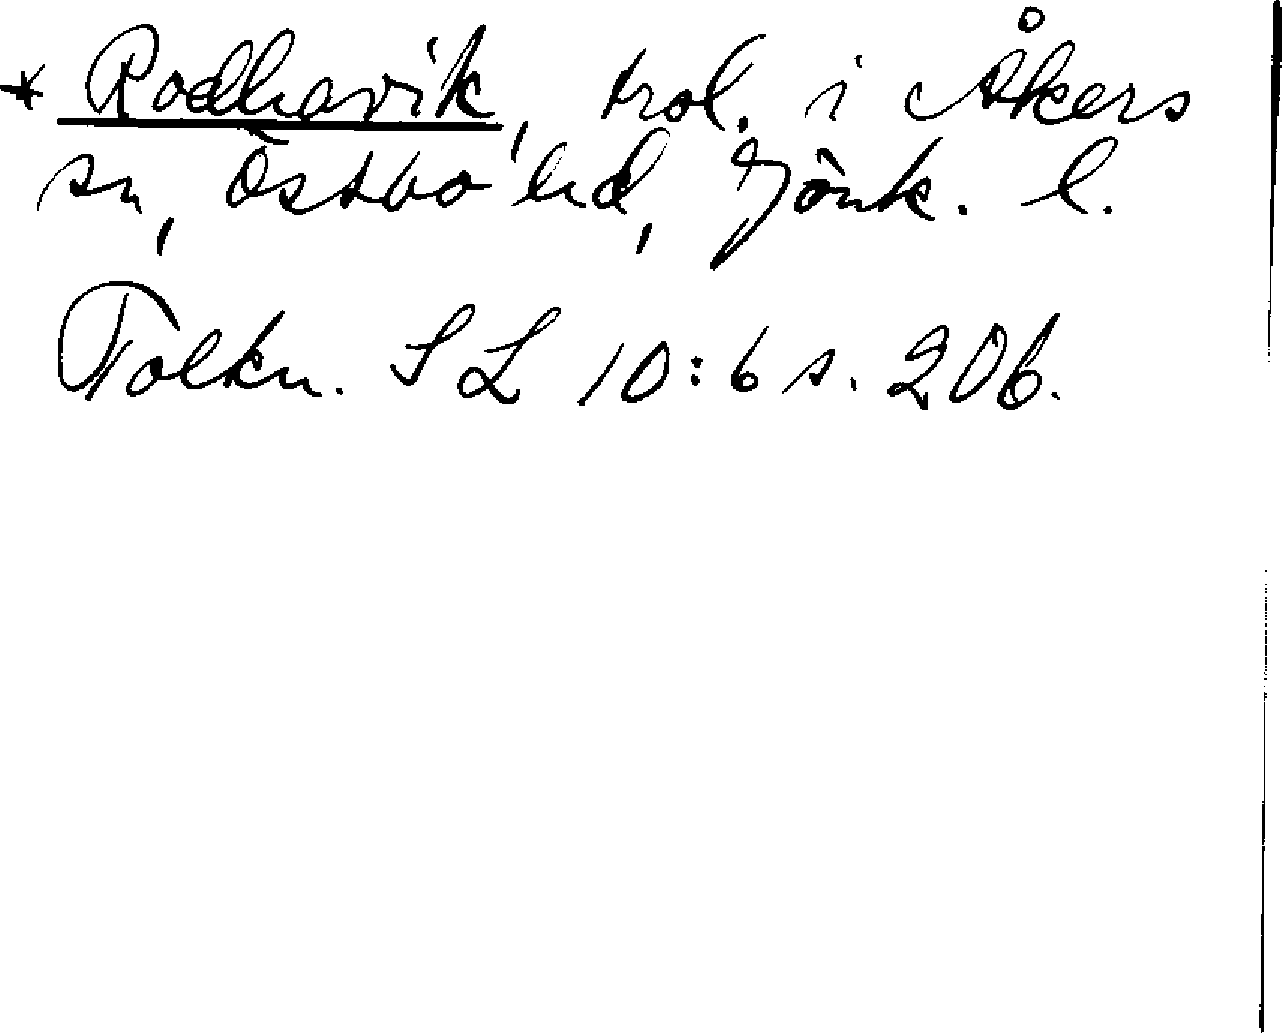 * Rodhavik, trol. i Åkers
sn, Östbo hd, Jönk. l.
Tolkn. SL 10:6 s. 206.